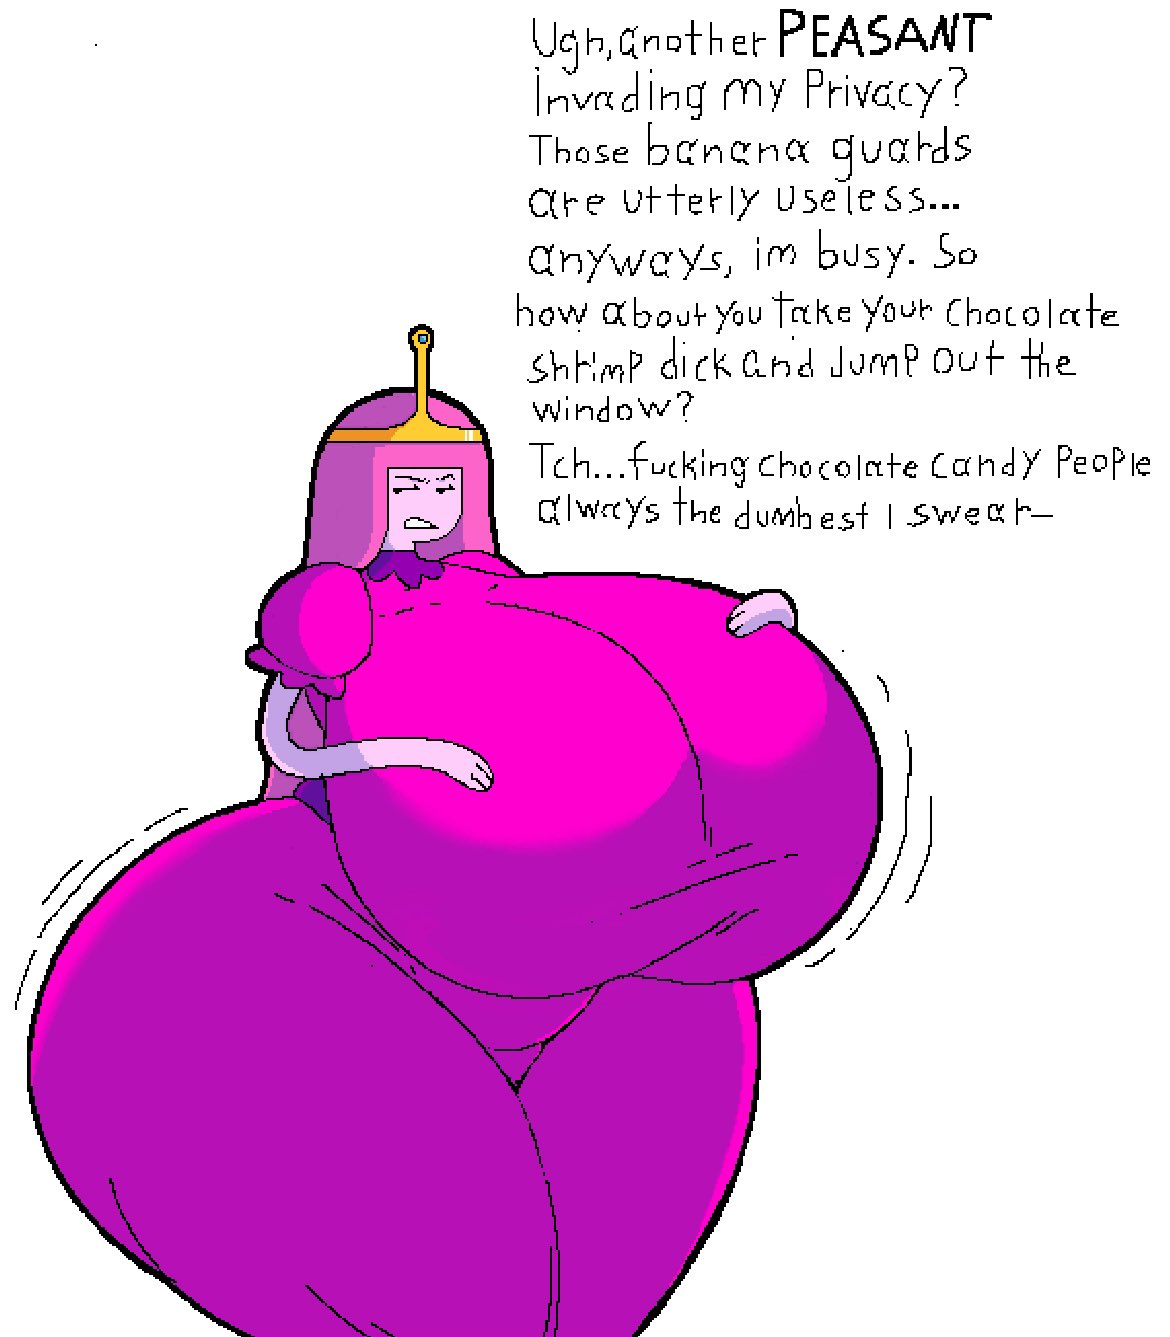 Ugh, another PEASANT
invading my Privacy?
Those banana guards
are utterly useless...
anyways, im busy. So
how about you take your chocolate
shrimp dick and jump out the
window?
Tch...fucking chocolate candy people
always the dumbest I swear—